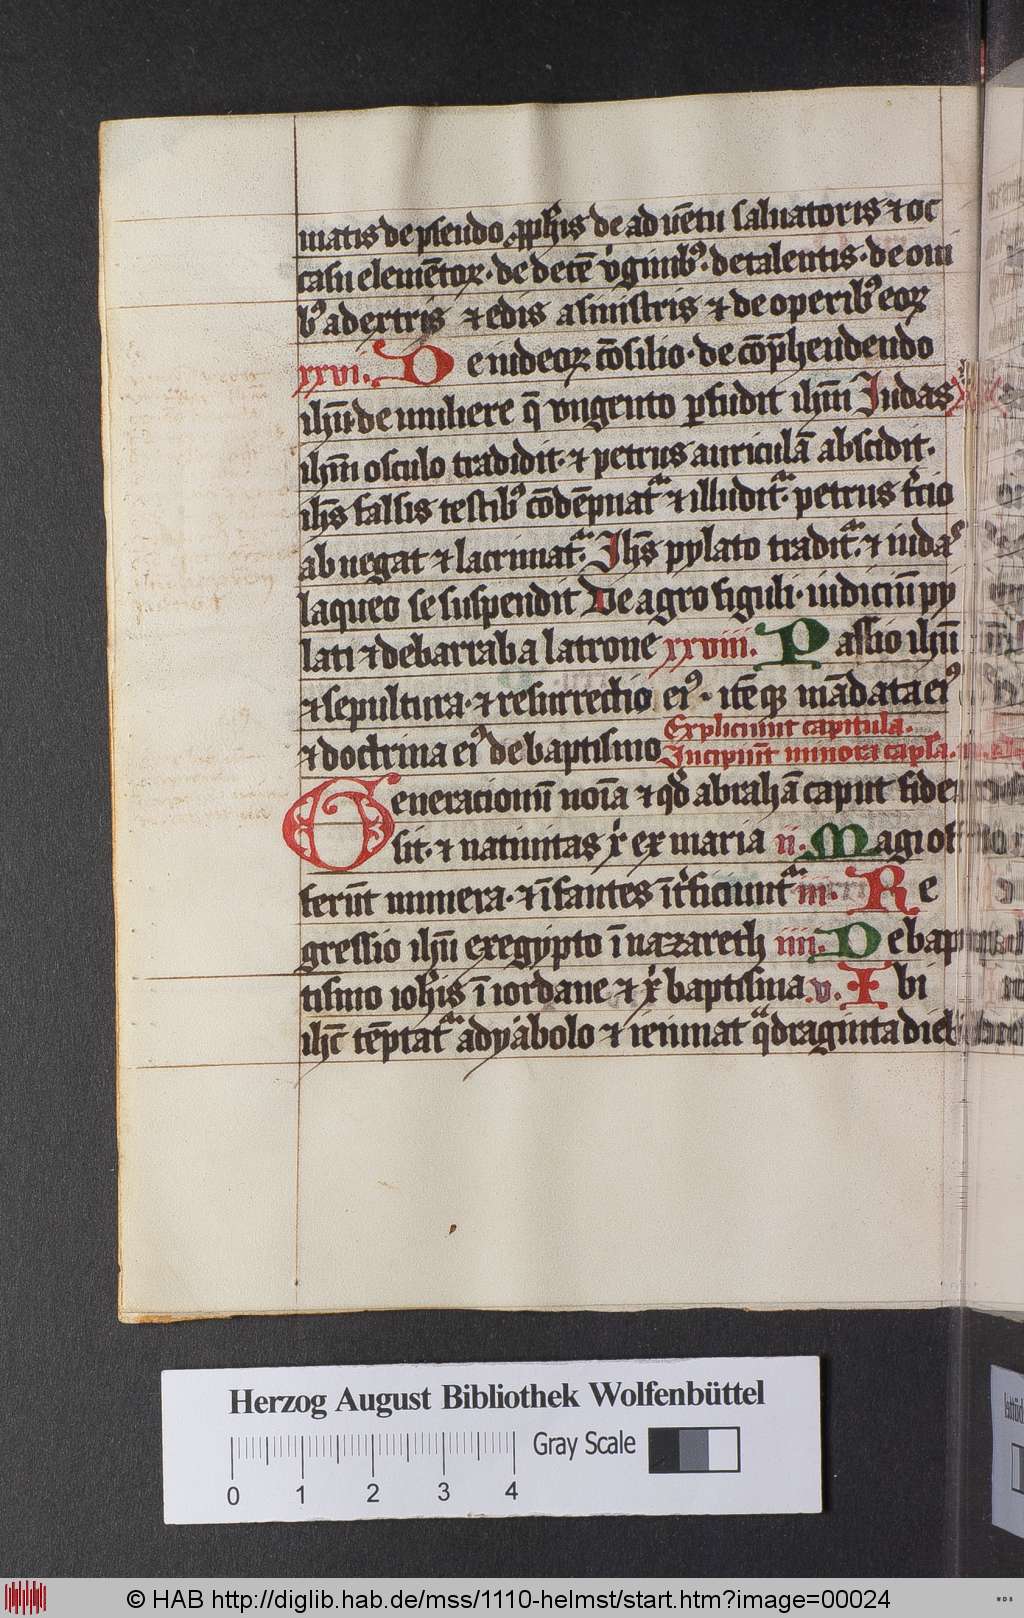 matis de pseudo ꝓph̄is de aduētu saluatoris ⁊ oc
casu elemētoꝝ · de decē v̇ginibꝰ · de talentis · de oui
bꝰ a dextris ⁊ edis a sinistris ⁊ de operibꝰ eoꝝ
xxvi. De iudeoꝝ cōsilio · de cōp̄hendendo
ihm̄ de muliere q̄ vngento ꝑfudit ihm̄ Iudas
ihm̄ osculo tradidit · ⁊ petrus auriculā abscidit ·
ih̄s falsis testibꝰ cōdēpnatᷓ ⁊ illuditᷓ · petrus t̓cio
ab negat ⁊ lacrimatᷓ · Ih̄s pylato traditᷓ · ⁊ iudas
laqueo se suspendit De agro figuli · iudiciū py
lati ⁊ de barraba latrone xxviii. Passio ihū
⁊ sepultura · ⁊ resurrectio eiꝰ · itēqꝫ mādata eiꝰ
⁊ doctrina eiꝰ de baptismo Expliciunt capitula.
Incipiūt minora capl̄a.
Generacionū noīa ⁊ qd̓ abrahā caput fidei
sit · ⁊ natiuitas xp̓i ex maria ii. Magi of
ferūt munera · ⁊ īfantes īt̓ficiuntᷓ iii. Re
gressio ihū ex egypto ī nazareth iiii. De bap
tismo ioh̄is ī iordane ⁊ xp̓i baptisma v. Ibi
ihc̄ tēptatᷓ a dyabolo ⁊ ieiunat qᷓdraginta dieb
Herzog August Bibliothek Wolfenbüttel
Gray Scale
0 1 2 3 4
© HAB http://diglib.hab.de/mss/1110-helmst/start.htm?image=00024